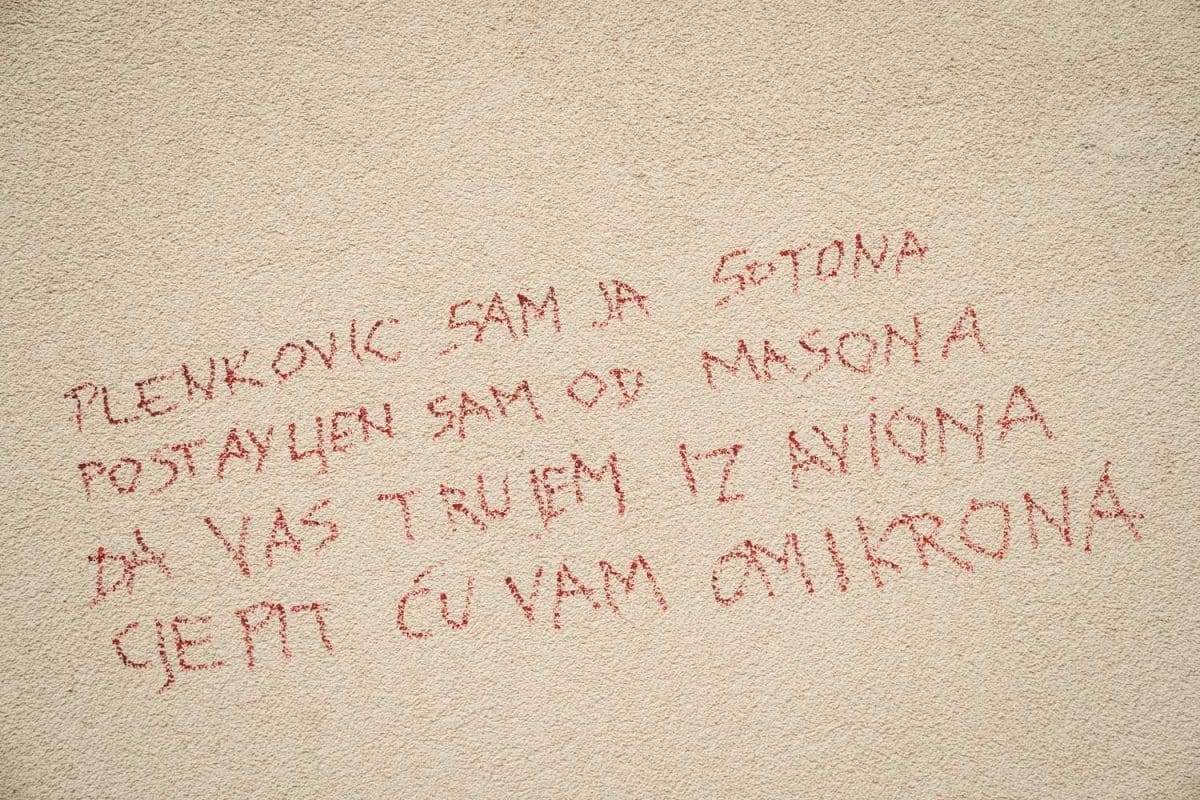 PLENKOVIC SAM JA SOTONA
POSTAVLJEN SAM OD MASONA
DA VAS TRUJEM IZ AVIONA
CJEPIT ĆU VAM OMIKRONA